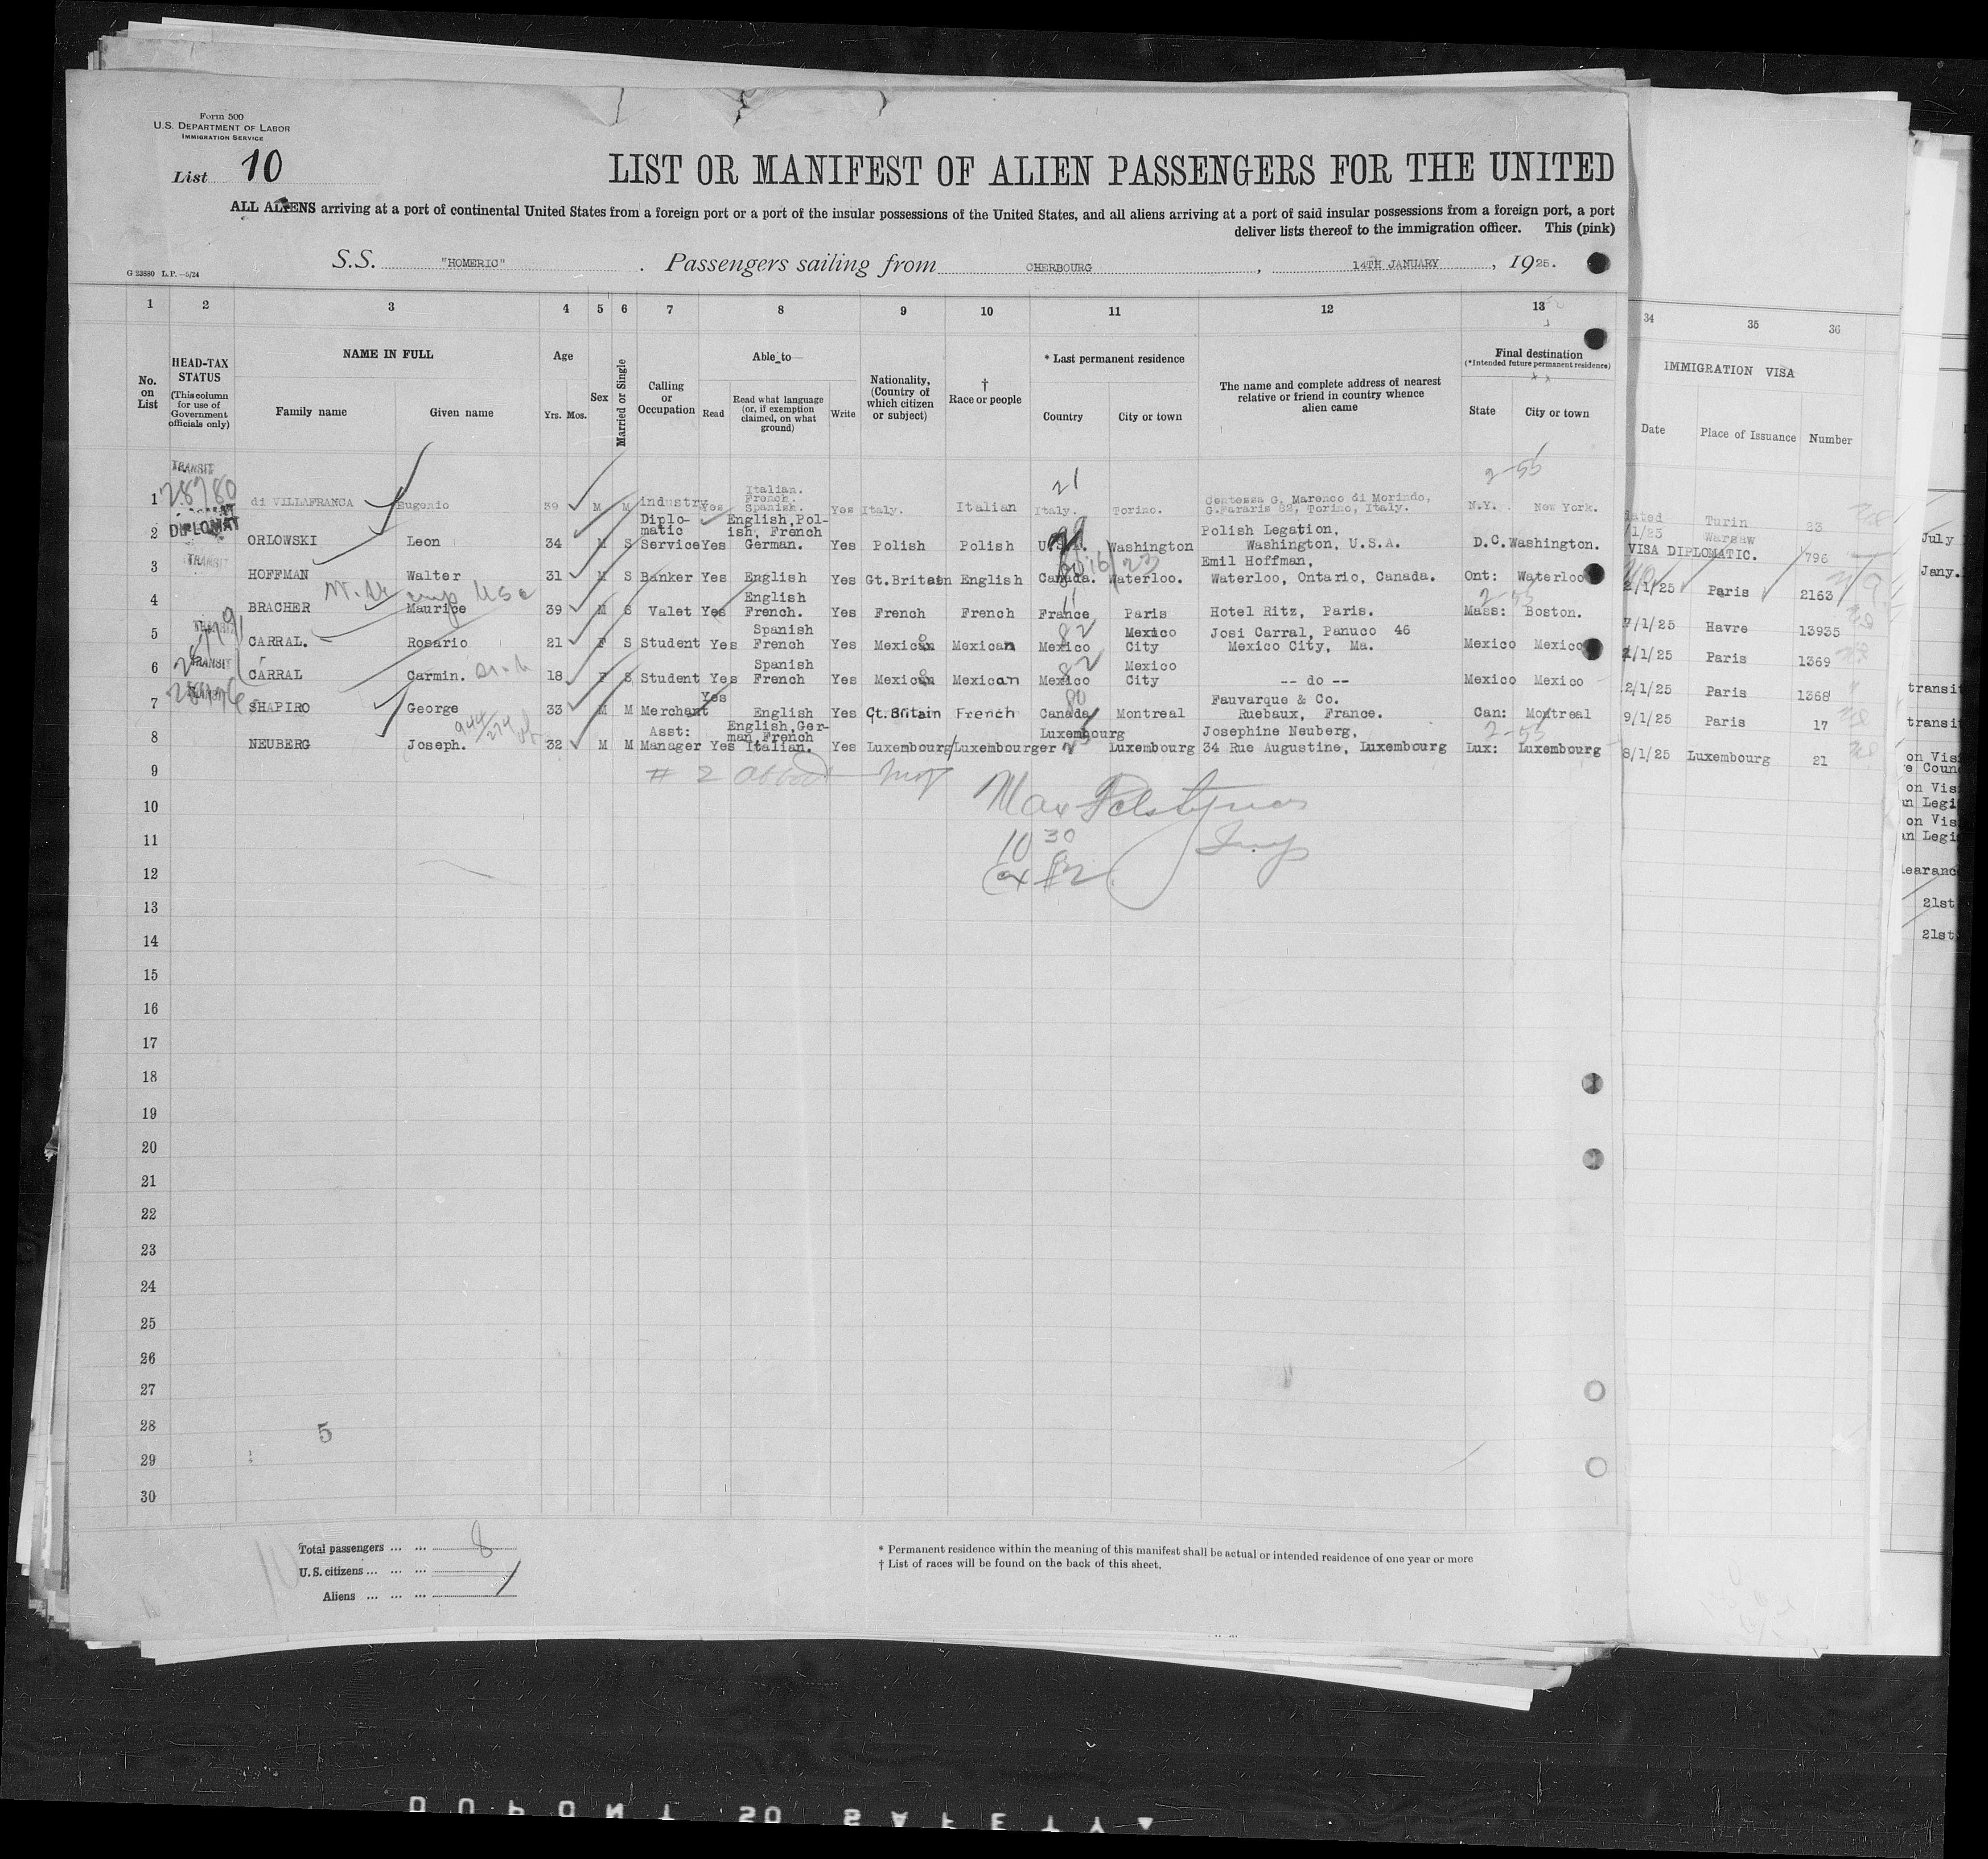 Form 500
U.S. DEPARTMENT OF LABOR
IMMIGRATION SERVICE
List 10
LIST OR MANIFEST OF ALIEN PASSENGERS FOR THE UNITED
ALL ALIENS arriving at a port of continental United States from a foreign port or a port of the insular possessions of the United States, and all aliens arriving at a port of said insular possessions from a foreign port, a port
deliver lists thereof to the immigration officer. This (pink)
G 23880 L.P.—5/24
S.S. "HOMERIC" . Passengers sailing from CHERBOURG , 14TH JANUARY , 1925.
1 2 3 4 5 6 7 8 9 10 11 12 13 34 35 36
No. on List
HEAD-TAX STATUS (This column for use of Government officials only)
NAME IN FULL
Family name Given name
Age
Yrs. Mos.
Sex
Married or Single
Calling or Occupation
Able to—
Read
Read what language (or, if exemption claimed, on what ground)
Write
Nationality, (Country of which citizen or subject)
† Race or people
* Last permanent residence
Country City or town
The name and complete address of nearest relative or friend in country whence alien came
Final destination
(*Intended future permanent residence)
State City or town
IMMIGRATION VISA
Date Place of Issuance Number
TRANSIT
28780
21
2-55
1 di VILLAFRANCA Eugenio 39 M M industry Yes Italian. French. Spanish. Yes Italy. Italian Italy. Torino. Contessa G. Marenco di Morindo, G.Fararis 82, Torino, Italy. N.Y. New York. Turin 23
DIPLOMAT
2 ORLOWSKI Leon 34 M S Diplo-matic Service Yes English, Pol-ish, French German. Yes Polish Polish U.S.A. Washington Polish Legation, Washington, U.S.A. D.C. Washington. 1/25 Warsaw VISA DIPLOMATIC. 796
TRANSIT
3 HOFFMAN Walter 31 M S Banker Yes English Yes Gt.Britain English Canada. Waterloo. Emil Hoffman, Waterloo, Ontario, Canada. Ont: Waterloo 2/1/25 Paris 2163
4 BRACHER Maurice 39 M S Valet Yes English French. Yes French French France Paris Hotel Ritz, Paris. Mass: Boston. 7/1/25 Havre 13935
11
2-55
5 CARRAL. Rosario 21 F S Student Yes Spanish French Yes Mexican Mexican Mexico Mexico City Josi Carral, Panuco 46 Mexico City, Ma. Mexico Mexico 2/1/25 Paris 1369
82
TRANSIT
6 CARRAL Carmin. 18 F S Student Yes Spanish French Yes Mexican Mexican Mexico Mexico City -- do -- Mexico Mexico 2/1/25 Paris 1368
82
7 SHAPIRO George 33 M M Merchant Yes English Yes Gt.Britain French Canada Montreal Fauvarque & Co. Ruebaux, France. Can: Montreal 9/1/25 Paris 17
80
8 NEUBERG Joseph. 32 M M Asst: Manager Yes English,Ger-man,French Italian. Yes Luxembourg Luxembourger Luxembourg Luxembourg Josephine Neuberg, 34 Rue Augustine, Luxembourg Lux: Luxembourg 8/1/25 Luxembourg 21
2-55
9
10
11
12
13
14
15
16
17
18
19
20
21
22
23
24
25
26
27
28
29
30
10 30
#2
5
July
Jany.
transit
transit
on Vis
on Vis
on Vis
21st
21st
Total passengers ... ... 8
U.S. citizens ... ... ...
Aliens ... ... ...
* Permanent residence within the meaning of this manifest shall be actual or intended residence of one year or more
† List of races will be found on the back of this sheet.
DUPONT SO SAFETY